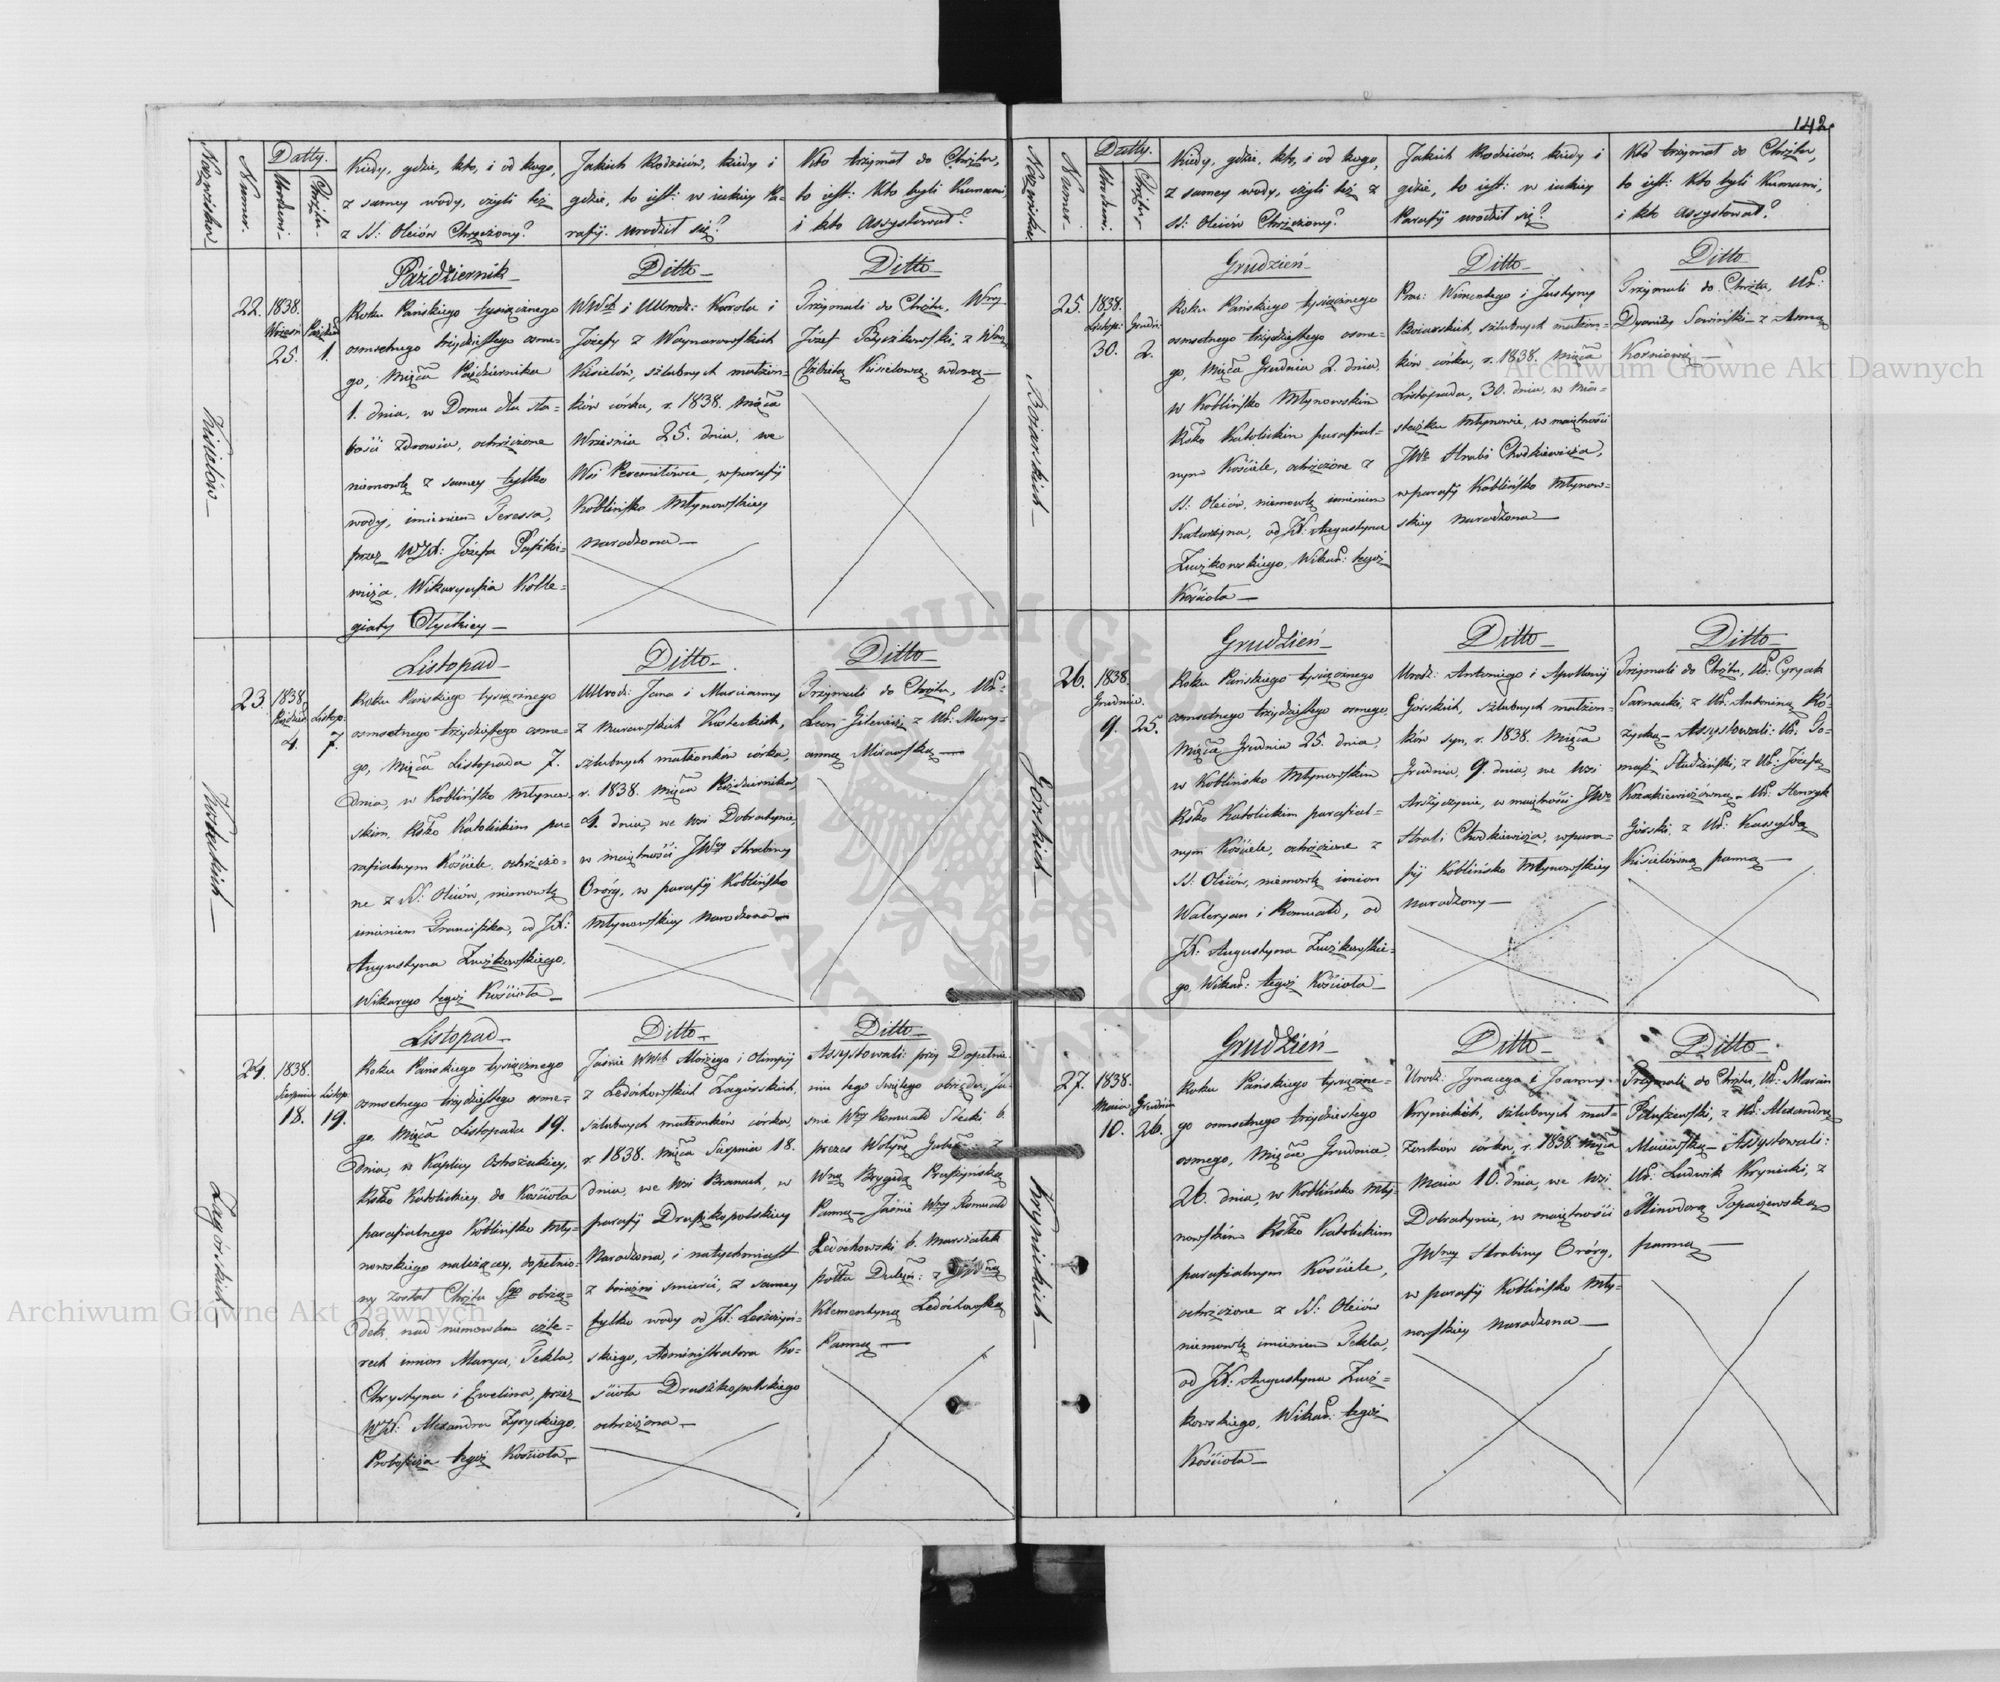 142.
Nazwiska
Numer.
Datty.
Urodzeni.
Chrztu.
Kiedy, gdzie, kto, i od kogo,
z samey wody, czyli też
z SS: Oleiów Chrzczony?
Jakich Rodziców, kiedy i
gdzie, to iest: w iakiey Pa-
rafij urodził się?
Kto trzymał do Chrztu,
to iest: Kto byli Kumami,
i kto Assystował?
Kisielów
22.
1838.
Wrześń
25.
Paździer
1.
Październik
Roku Pańskiego tysiącznego
osmsetnego trzydziestego osme-
go, Mięsca Października
1. dnia, w Domu dla sła-
bości zdrowia, ochrzczone
niemowlę z samey tylko
wody, imieniem Teressa,
przez WJX: Józefa
Wikaryusza Kolle-
giaty Ołyckiey
Ditto
WWch i UUrodz: Karola i
Józefy z Waynarowskich
Kisielów, szlubnych małżon-
ków córka, r. 1838. Mięsca
Września 25. dnia, we
Wsi Peremiłówce, w parafij
Koblińsko Młynowskiey
narodzona
Ditto
Trzymali do Chrztu, Wny
Józef z Wną
Elżbietą Kisielową wdową
23.
1838.
Paździer
4.
Listop:
7.
Listopad
Roku Pańskiego tysiącznego
osmsetnego trzydziestego osme-
go, Mięsca Listopada 7.
dnia, w Koblińsko Młynow-
skim, Rsko Katolickim pa-
rafialnym Kościele, ochrzczo-
ne z SS: Oleiów, niemowlę
imieniem Franciszka, od JX:
Augustyna Zuczkowskiego,
Wikarego tegoż Kościoła
Ditto
UUrodz: Jana i Marcianny
z Murawskich
szlubnych małżonków córka,
r. 1838. Mięsca Października
4. dnia, we Wsi Dobratynie,
w maiętności JWney Hrabiny
w parafij Koblińsko
Młynowskiey narodzona
Ditto
Trzymali do Chrztu, Ur:
Leon z Ur: Mary-
anną
Zagórskich
24.
1838.
Sierpnia
18.
Listop.
19.
Listopad
Roku Pańskiego tysiącznego
osmsetnego trzydziestego osme-
go, Mięsca Listopada 19.
dnia, w Kaplicy Ostrożeckiey,
Rsko Katolickiey, do Kościoła
parafialnego Koblińsko Mły-
nowskiego należącey, dopełnio-
ny został Chrztu Sgo obrzą-
dek, nad niemowlem czte-
rech imion Marya, Tekla,
Chrystyna i Ewelina, przez
WJX: Alexandra Zyryckiego,
Proboszcza tegoż Kościoła
Ditto
Jaśnie WWch Aloizego i Olimpij
z Ledóchowskich Zagórskich,
szlubnych małżonków córka,
r. 1838. Mięsca Sierpnia 18.
dnia, we Wsi Branach, w
parafij Druszkopolskiey
narodzona, i natychmiast
z boiaźni śmierci, z samey
tylko wody od JX: Leszczyń-
skiego, Administratora Ko-
ścioła Druszkopolskiego
ochrzczona
Ditto
Assystowali przy Dopełnie-
niu tego Świętego obrzędu, Ja-
śnie Wny Romuald b.
prezes Wołyń: z
Wną Brygidą
Panną Jaśnie Wny Romuald
Ledóchowski b. Marszałek
z
Klementyną Ledóchowską
Panną
Nazwiska
Numer.
Datty.
Urodzeni.
Chrztu,
Kiedy, gdzie, kto, i od kogo,
z samey wody, czyli też z
SS: Oleiów Chrzczony?
Jakich Rodziców, kiedy i
gdzie, to iest: w iakiey
Parafij urodził się?
Kto trzymał do Chrztu,
to iest: Kto byli Kumami,
i kto Assystował?
Boiarskich
25.
1838.
Listop:
30.
Grudz:
2.
Grudzień
Roku Pańskiego tysiącznego
osmsetnego trzydziestego osme-
go, Mięsca Grudnia 2. dnia,
w Koblińsko Młynowskim
Rsko Katolickim parafial-
nym Kościele, ochrzczone z
SS: Oleiów, niemowlę imieniem
Katarzyna, od JX: Augustyna
Zuczkowskiego, Wikar: tegoż
Kościoła
Ditto
Prac: Wincentego i Justyny
Boiarskich, szlubnych małżon-
ków córka, r. 1838. Mięsca
Listopada, 30. dnia, w Mia-
steczku Młynowie, w maiętności
JWo Hrabi Chodkiewicza,
w parafij Koblińsko Młynow-
skiey narodzona
Ditto
Trzymali do Chrztu, Ur:
Dyonizy Sawiński z Anną
Górskich
26.
1838.
Grudnia
9.
25.
Grudzień
Roku Pańskiego tysiącznego
osmsetnego trzydziestego osmego,
Mięsca Grudnia 25. dnia,
w Koblińsko Młynowskim
Rsko Katolickim parafial-
nym Kościele, ochrzczone z
SS: Oleiów, niemowlę imion
Waleryan i Romuald, od
JX: Augustyna Zuczkowskie-
go, Wikar: tegoż Kościoła
Ditto
Urodz: Antoniego i Apollonij
Górskich, szlubnych małżon-
ków syn, r. 1838. Mięsca
Grudnia, 9. dnia, we Wsi
Arszyczynie, w maiętności JWo
Hrabi Chodkiewicza, w para-
fij Koblińsko Młynowskiey
narodzony
Ditto
Trzymali do Chrztu, Ur: Cyryak
Sarnacki, z Ur: Antoniną Ró-
życką Assystowali: Ur: To-
masz Studziński, z Ur: Józefą
Kozakiewiczówną, Ur: Henryk
Górski, z Ur: Kassyldą
Kisielówną panną
Krynickich
27.
1838.
Maia
10.
Grudnia
26.
Grudzień
Roku Pańskiego tysiączne-
go osmsetnego trzydziestego
osmego, Mięsca Grudnia
26. dnia, w Koblińsko Mły-
nowskim Rsko Katolickim
parafialnym Kościele,
ochrzczone z SS: Oleiów
niemowlę imieniem Tekla,
od JX: Augustyna Zucz-
kowskiego, Wikar: tegoż
Kościoła
Ditto
Urodz: Ignacego i Joanny
Krynickich, szlubnych mał-
żonków córka, r. 1838. Mięsca
Maia 10. dnia, we Wsi
Dobratynie, w maiętności
JWney Hrabiny
w parafij Koblińsko Mły-
nowskiey narodzona
Ditto
Trzymali do Chrztu, Ur: Marcin
z Ur: Alexandrą
Assystowali:
Ur: Ludwik Krynicki, z
Minodorą
panną
Archiwum Główne Akt Dawnych
Archiwum Główne Akt Dawnych